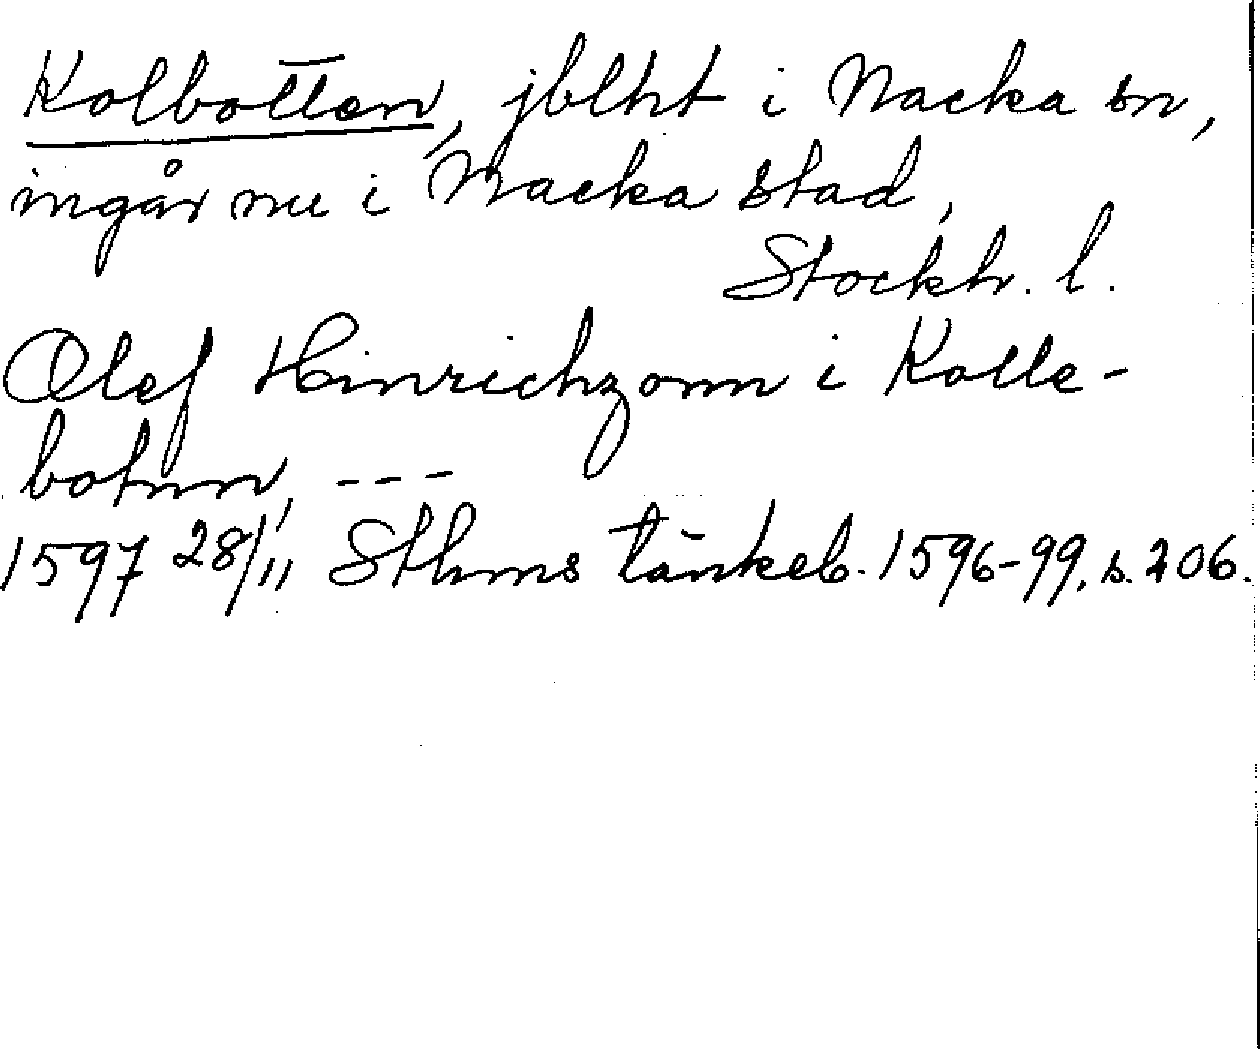 Kolbotten, jblht i Nacka sn,
ingår nu i Nacka stad,
Stockh. l.
Olef Hinrichzonn i Kolle-
botnn, ---
1597 28/11 Sthms tänkeb. 1596-99, s. 206.